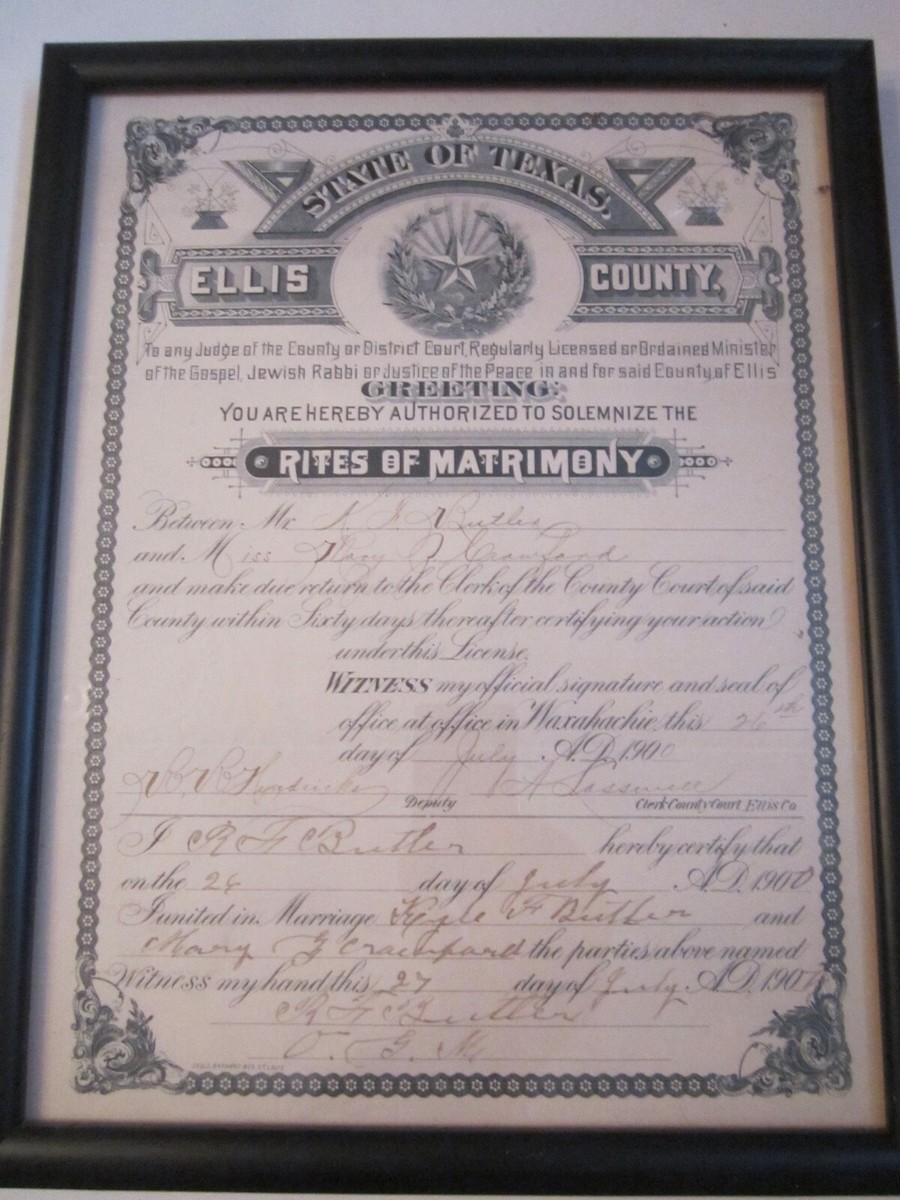 STATE OF TEXAS,
ELLIS COUNTY.
To any Judge of the County or District Court, Regularly Licensed or Ordained Minister
of the Gospel, Jewish Rabbi or Justice of the Peace in and for said County of Ellis
GREETING:
YOU ARE HEREBY AUTHORIZED TO SOLEMNIZE THE
RITES OF MATRIMONY
Between Mr. K F Butler
and Miss Mary Crawford
and make due return to the Clerk of the County Court of said
County within Sixty days thereafter certifying your action
under this License.
WITNESS my official signature and seal of
office at office in Waxahachie this 26th
day of July A.D. 1900
Deputy Clerk County Court Ellis Co
I R F Butler hereby certify that
on the 26 day of July A.D. 1900
I united in Marriage F Butler and
Mary G Crawford the parties above named
Witness my hand this 27 day of July A.D. 1900
R F Butler